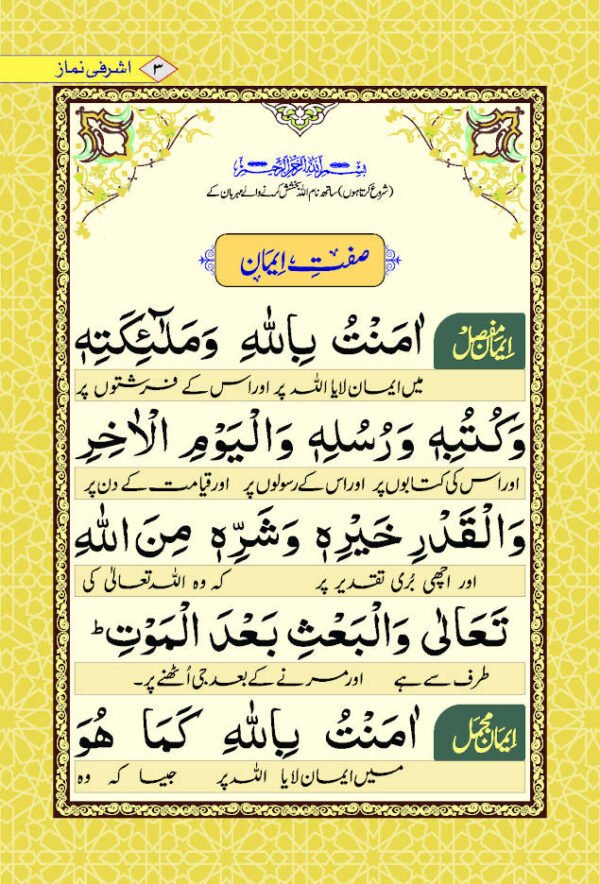 اشرفی نماز ۳
بسم اللہ الرحمن الرحیم
(شروع کرتا ہوں) ساتھ نام اللہ بخشش کرنے والے مہربان کے
صفتِ اِیمَان
اِیمانِ مفصل
اٰمَنْتُ بِاللّٰهِ وَمَلٰٓئِكَتِهٖ
میں ایمان لایا اللہ پر اور اس کے فرشتوں پر
وَكُتُبِهٖ وَرُسُلِهٖ وَالْيَوْمِ الْاٰخِرِ
اور اس کی کتابوں پر اور اس کے رسولوں پر اور قیامت کے دن پر
وَالْقَدْرِ خَيْرِهٖ وَشَرِّهٖ مِنَ اللّٰهِ
اور اچھی بُری تقدیر پر کہ وہ اللہ تعالیٰ کی
تَعَالٰى وَالْبَعْثِ بَعْدَ الْمَوْتِ ؕ
طرف سے ہے اور مرنے کے بعد جی اُٹھنے پر۔
اِیمانِ مجمل
اٰمَنْتُ بِاللّٰهِ كَمَا هُوَ
میں ایمان لایا اللہ پر جیسا کہ وہ